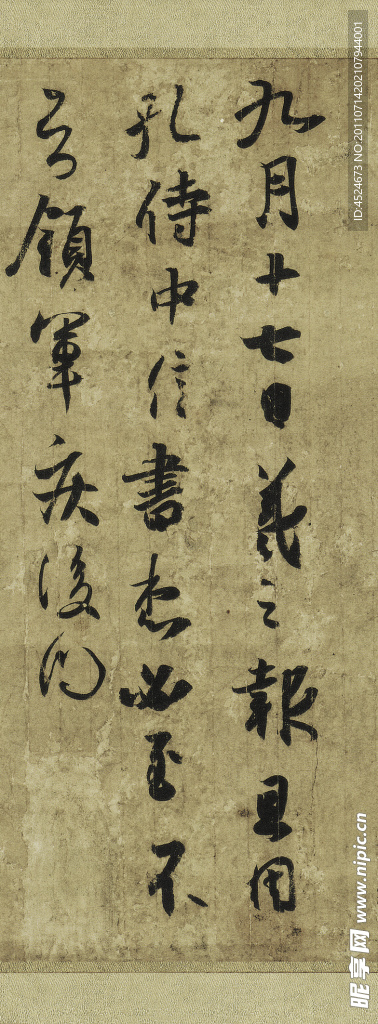 九月十七日羲之報且用
孔侍中信書想必至不
知領軍疾後問
ID:4524673 NO:20110714202107944001
昵享网 www.nipic.cn